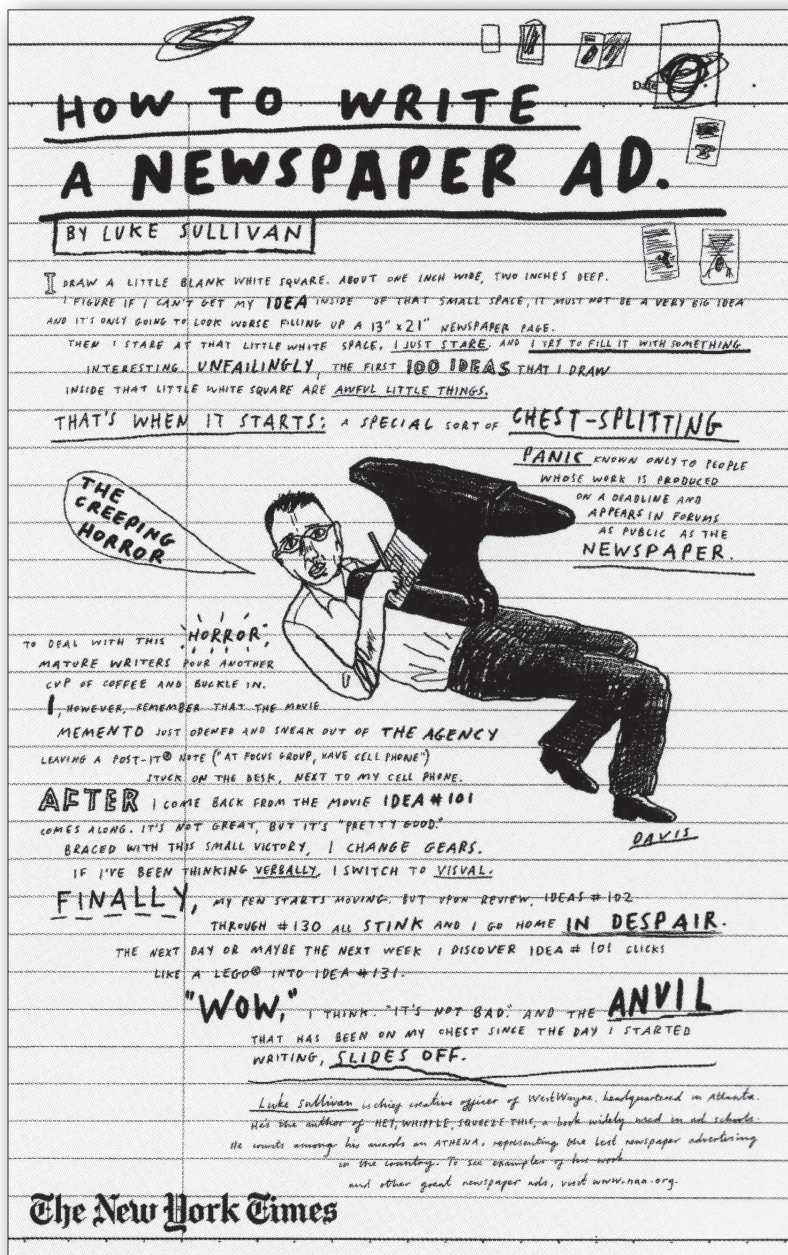 Date
HOW TO WRITE
A NEWSPAPER AD.
BY LUKE SULLIVAN
I DRAW A LITTLE BLANK WHITE SQUARE. ABOUT ONE INCH WIDE, TWO INCHES DEEP.
I FIGURE IF I CAN'T GET MY IDEA INSIDE OF THAT SMALL SPACE, IT MUST NOT BE A VERY BIG IDEA
AND IT'S ONLY GOING TO LOOK WORSE FILLING UP A 13" x 21" NEWSPAPER PAGE.
THEN I STARE AT THAT LITTLE WHITE SPACE. I JUST STARE. AND I TRY TO FILL IT WITH SOMETHING
INTERESTING. UNFAILINGLY, THE FIRST 100 IDEAS THAT I DRAW
INSIDE THAT LITTLE WHITE SQUARE ARE AWFUL LITTLE THINGS.
THAT'S WHEN IT STARTS: A SPECIAL SORT OF CHEST-SPLITTING
PANIC KNOWN ONLY TO PEOPLE
WHOSE WORK IS PRODUCED
ON A DEADLINE AND
APPEARS IN FORUMS
AS PUBLIC AS THE
NEWSPAPER.
THE
CREEPING
HORROR
TO DEAL WITH THIS "HORROR",
MATURE WRITERS POUR ANOTHER
CUP OF COFFEE AND BUCKLE IN.
I, HOWEVER, REMEMBER THAT THE MOVIE
MEMENTO JUST OPENED AND SNEAK OUT OF THE AGENCY
LEAVING A POST-IT® NOTE ("AT FOCUS GROUP, HAVE CELL PHONE")
STUCK ON THE DESK, NEXT TO MY CELL PHONE.
AFTER I COME BACK FROM THE MOVIE IDEA #101
COMES ALONG. IT'S NOT GREAT, BUT IT'S "PRETTY GOOD."
BRACED WITH THIS SMALL VICTORY, I CHANGE GEARS.
IF I'VE BEEN THINKING VERBALLY, I SWITCH TO VISUAL.
DAVIS
FINALLY, MY PEN STARTS MOVING. BUT UPON REVIEW, IDEAS #102
THROUGH #130 ALL STINK AND I GO HOME IN DESPAIR.
THE NEXT DAY OR MAYBE THE NEXT WEEK I DISCOVER IDEA # 101 CLICKS
LIKE A LEGO® INTO IDEA #131.
"WOW," I THINK. "IT'S NOT BAD." AND THE ANVIL
THAT HAS BEEN ON MY CHEST SINCE THE DAY I STARTED
WRITING, SLIDES OFF.
Luke Sullivan is chief creative officer of WestWayne, headquartered in Atlanta.
He's the author of HEY, WHIPPLE, SQUEEZE THIS, a book widely used in ad schools.
He counts among his awards an ATHENA, representing the best newspaper advertising
in the country. To see examples of his work
and other great newspaper ads, visit www.naa.org.
The New York Times